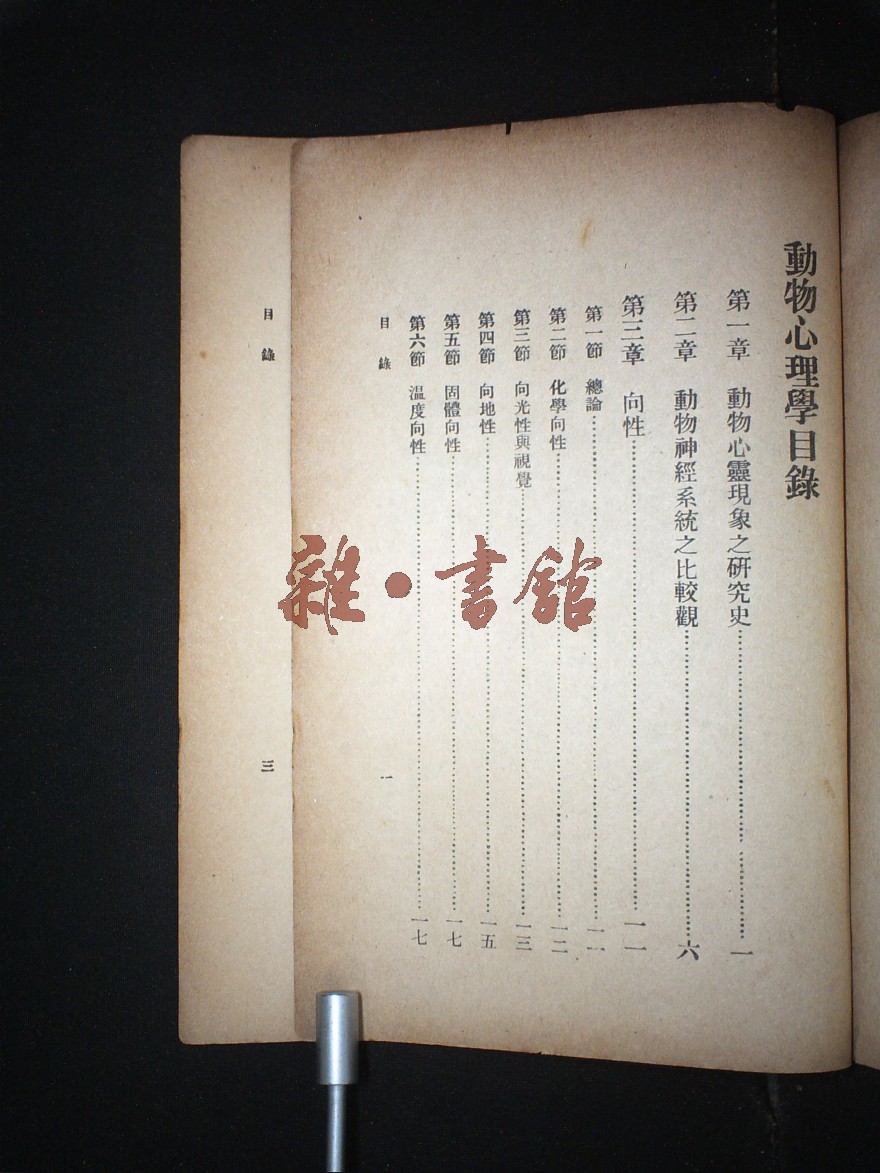 動物心理學目錄
第一章 動物心靈現象之研究史……一
第二章 動物神經系統之比較觀……六
第三章 向性……一一
第一節 總論……一一
第二節 化學向性……一二
第三節 向光性與視覺……一三
第四節 向地性……一五
第五節 固體向性……一七
第六節 溫度向性……一七
目錄 一
目錄 三
雜·書館